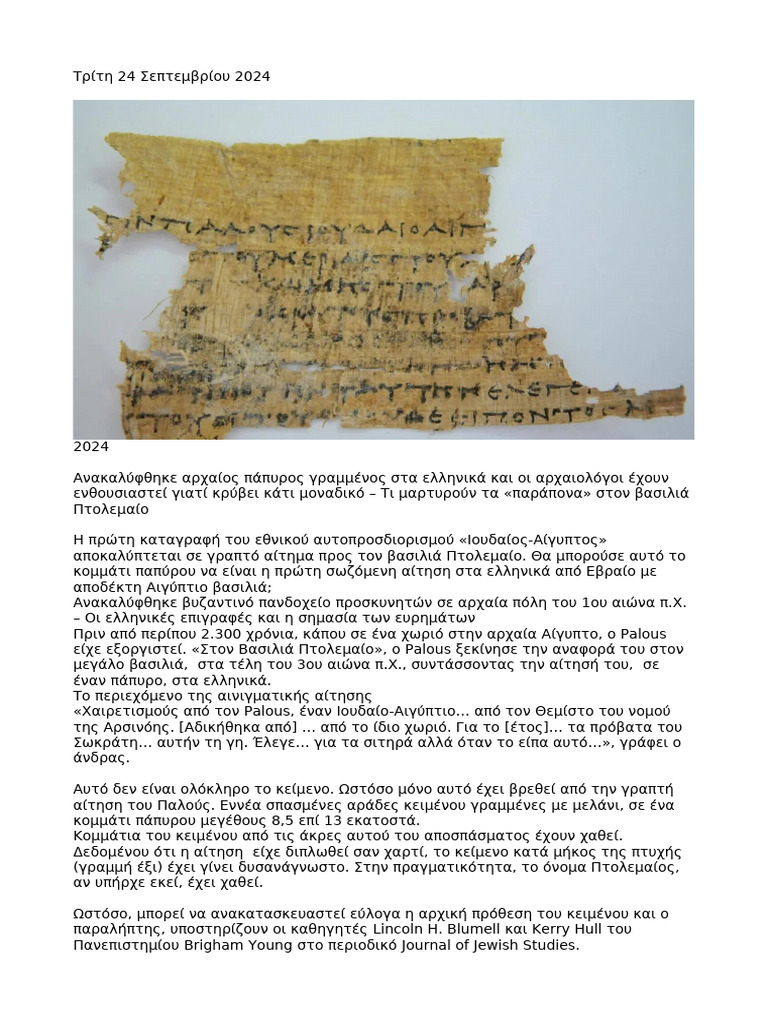 Τρίτη 24 Σεπτεμβρίου 2024
ΑΛΟΥΣΙΟΥΔΑΙΟΑΙΓ
2024
Ανακαλύφθηκε αρχαίος πάπυρος γραμμένος στα ελληνικά και οι αρχαιολόγοι έχουν
ενθουσιαστεί γιατί κρύβει κάτι μοναδικό – Τι μαρτυρούν τα «παράπονα» στον βασιλιά
Πτολεμαίο
Η πρώτη καταγραφή του εθνικού αυτοπροσδιορισμού «Ιουδαίος-Αίγυπτος»
αποκαλύπτεται σε γραπτό αίτημα προς τον βασιλιά Πτολεμαίο. Θα μπορούσε αυτό το
κομμάτι παπύρου να είναι η πρώτη σωζόμενη αίτηση στα ελληνικά από Εβραίο με
αποδέκτη Αιγύπτιο βασιλιά;
Ανακαλύφθηκε βυζαντινό πανδοχείο προσκυνητών σε αρχαία πόλη του 1ου αιώνα π.Χ.
– Οι ελληνικές επιγραφές και η σημασία των ευρημάτων
Πριν από περίπου 2.300 χρόνια, κάπου σε ένα χωριό στην αρχαία Αίγυπτο, ο Palous
είχε εξοργιστεί. «Στον Βασιλιά Πτολεμαίο», ο Palous ξεκίνησε την αναφορά του στον
μεγάλο βασιλιά,  στα τέλη του 3ου αιώνα π.Χ., συντάσσοντας την αίτησή του,  σε
έναν πάπυρο, στα ελληνικά.
Το περιεχόμενο της αινιγματικής αίτησης
«Χαιρετισμούς από τον Palous, έναν Ιουδαίο-Αιγύπτιο… από τον Θεμίστο του νομού
της Αρσινόης. [Αδικήθηκα από] … από το ίδιο χωριό. Για το [έτος]… τα πρόβατα του
Σωκράτη… αυτήν τη γη. Έλεγε… για τα σιτηρά αλλά όταν το είπα αυτό…», γράφει ο
άνδρας.
Αυτό δεν είναι ολόκληρο το κείμενο. Ωστόσο μόνο αυτό έχει βρεθεί από την γραπτή
αίτηση του Παλούς. Εννέα σπασμένες αράδες κειμένου γραμμένες με μελάνι, σε ένα
κομμάτι πάπυρου μεγέθους 8,5 επί 13 εκατοστά.
Κομμάτια του κειμένου από τις άκρες αυτού του αποσπάσματος έχουν χαθεί.
Δεδομένου ότι η αίτηση  είχε διπλωθεί σαν χαρτί, το κείμενο κατά μήκος της πτυχής
(γραμμή έξι) έχει γίνει δυσανάγνωστο. Στην πραγματικότητα, το όνομα Πτολεμαίος,
αν υπήρχε εκεί, έχει χαθεί.
Ωστόσο, μπορεί να ανακατασκευαστεί εύλογα η αρχική πρόθεση του κειμένου και ο
παραλήπτης, υποστηρίζουν οι καθηγητές Lincoln H. Blumell και Kerry Hull του
Πανεπιστημίου Brigham Young στο περιοδικό Journal of Jewish Studies.